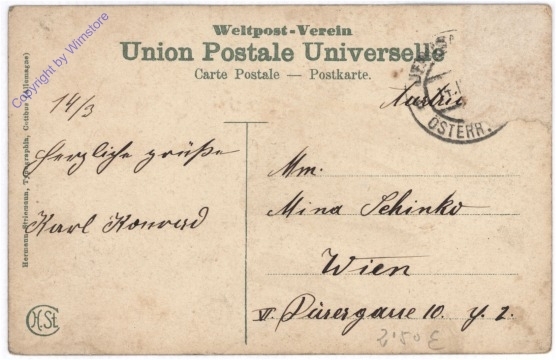 Weltpost-Verein
Union Postale Universelle
Carte Postale — Postkarte.
Copyright by Wimstore
Hermann Striemann, Typographin, Cottbus (Allemagne)
14/3
Austria
JER
ÖSTERR.
Herzliche Grüße
Karl Konrad
Mina Schinko
Wien
VI. Dürergasse 10.
2.50 €
H.St.